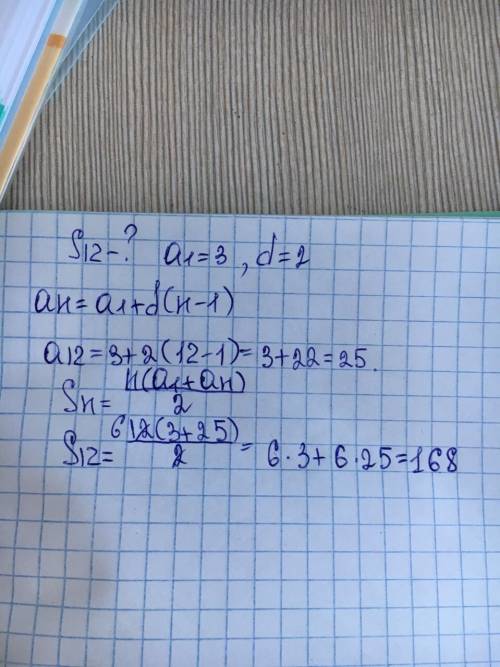 S12-? a1=3, d=2
an=a1+d(n-1)
a12=3+2(12-1)=3+22=25.
Sn= n(a1+an)/2
S12= 6 12(3+25)/2 = 6·3+6·25=168